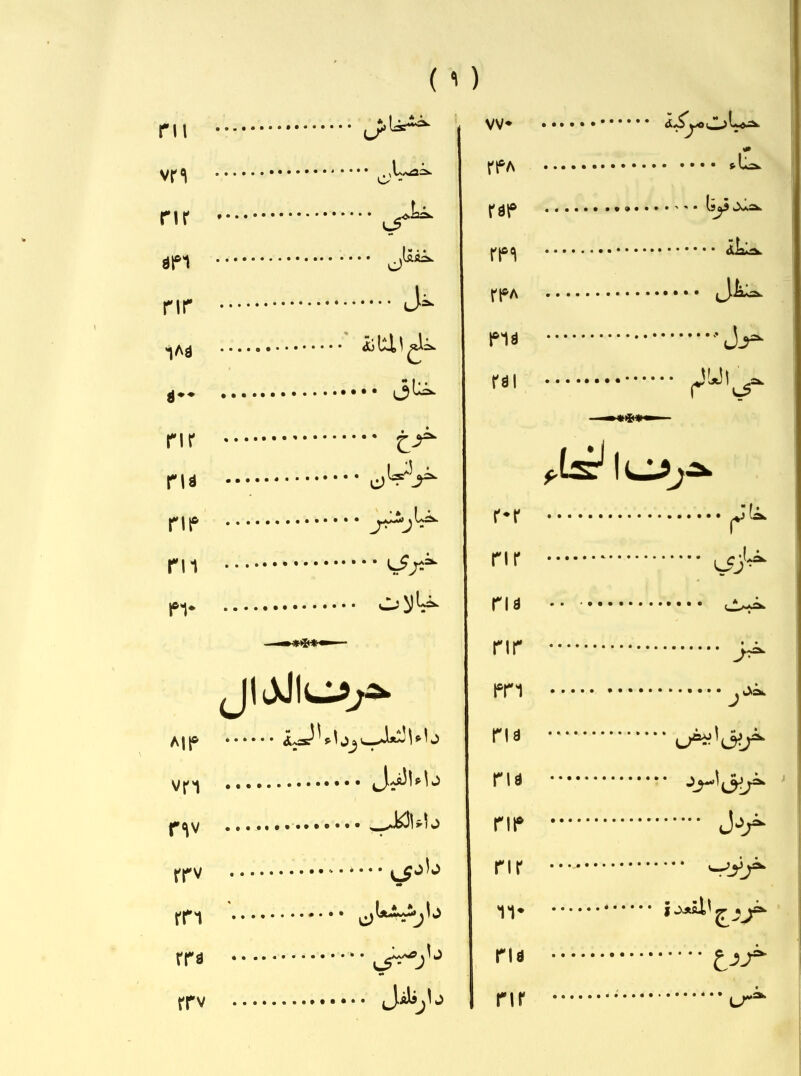 ( ٩ )
حمیات مركبة ٧٧٠
حناء ٢٣٨
حندقوقا ٢٥٣
حنطة ٢٣٩
حنظل ٢٣٨
حول ٣٦٥
حي العالم ٢٥١
حرف الخاء
خاتم ٢٠٢
خبازي ٢١٢
خبث ٢١٥
خبز ٢١٢
خدر ٣٢٦
خربق ابیض ٢١٥
خربق اسود ٢١٥
خردل ٢١٣
خرنوب ٢١٢
خروج المقعدة ٦٦٠
خروع ٢١٥
خس ٢١٢
خشخاش ٢١١
خصیان ٧٢٩
خطمي ٢١٢
خفقان ٥٣٦
خل ٢١٢
خلع المثانة ٦٨٥
خناق ٥٠٠
خوخ ٢١٢
خولنجان ٢١٥
خیارشنبر ٢١٣
خیري ٢١٦
خیالات ٣٦٠
حرف الدال
داء الثعلب وداء الحیة ٨١٣
داء الفیل ٧٢٦
داء الكلب ٢٩٧
داذي ٢٢٧
دارشیشعان ٢٢٦
دارصیني ٢٢٥
دارفلفل ٢٢٧